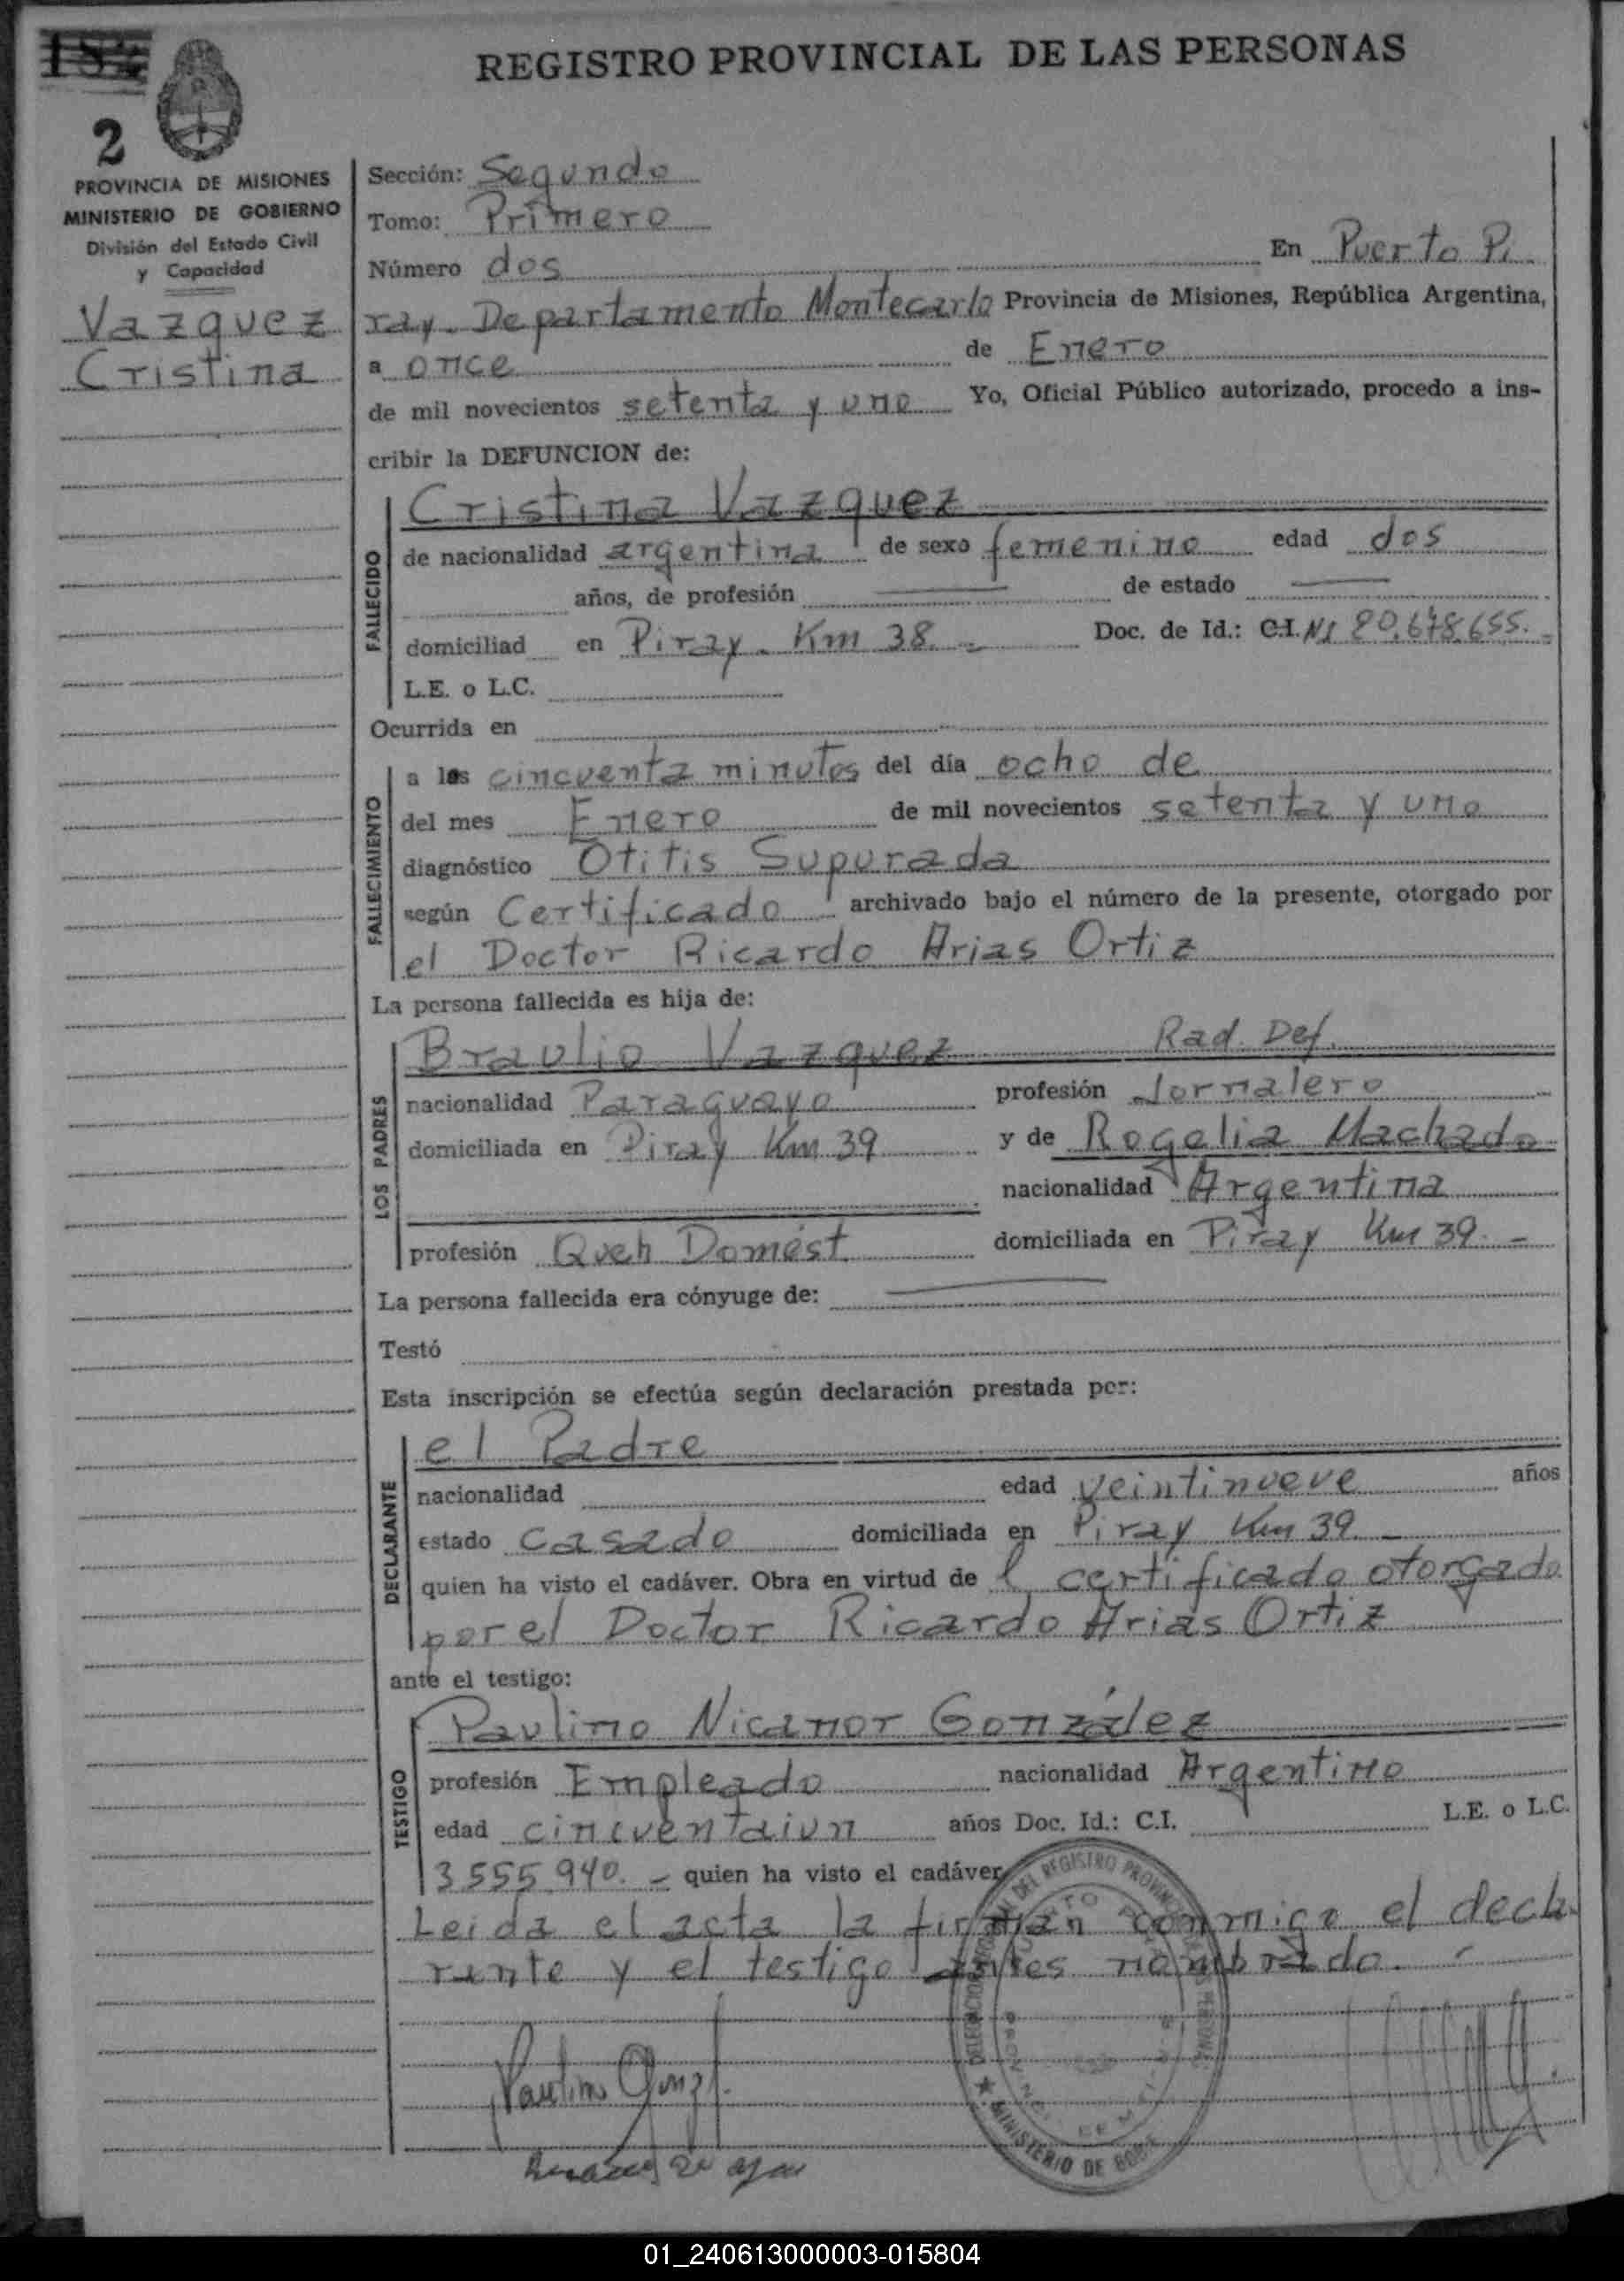 REGISTRO PROVINCIAL DE LAS PERSONAS
184
2
PROVINCIA DE MISIONES
MINISTERIO DE GOBIERNO
División del Estado Civil
y Capacidad
Vazquez
Cristina
Sección: Segundo
Tomo: Primero
Número dos En Puerto Pi
ray. Departamento Montecarlo Provincia de Misiones, República Argentina,
a once de Enero
de mil novecientos setenta y uno Yo, Oficial Público autorizado, procedo a ins-
cribir la DEFUNCION de:
FALLECIDO
Cristina Vazquez
de nacionalidad argentina de sexo femenino edad dos
años, de profesión de estado
domiciliad en Piray. Km 38. Doc. de Id.: C.I. Nº 80.678.655.
L.E. o L.C.
Ocurrida en
FALLECIMIENTO
a las cincuenta minutos del día ocho de
del mes Enero de mil novecientos setenta y uno
diagnóstico Otitis Supurada
según Certificado archivado bajo el número de la presente, otorgado por
el Doctor Ricardo Arias Ortiz
La persona fallecida es hija de:
LOS PADRES
Braulio Vazquez Rad. Def.
nacionalidad Paraguayo profesión Jornalero
domiciliada en Piray Km 39 y de Rogelia Machado
nacionalidad Argentina
profesión Queh Domést domiciliada en Piray Km 39. -
La persona fallecida era cónyuge de:
Testó
Esta inscripción se efectúa según declaración prestada por:
DECLARANTE
el Padre
nacionalidad edad veintinueve años
estado casado domiciliada en Piray Km 39. -
quien ha visto el cadáver. Obra en virtud de l certificado otorgado
por el Doctor Ricardo Arias Ortiz
ante el testigo:
TESTIGO
Paulino Nicanor González
profesión Empleado nacionalidad Argentino
edad cincuentaiun años Doc. Id.: C.I. L.E. o L.C.
3555.940. - quien ha visto el cadáver
Leida el acta la firman conmigo el decla
rante y el testigo antes nombrado. -
DEL REGISTRO PROVINCIAL
MINISTERIO DE GOB
01_240613000003-015804